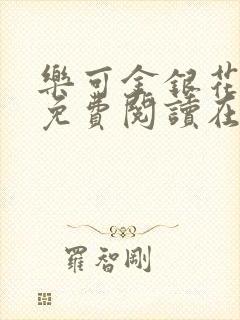 樂可金銀花
免費閱讀在
羅智剛